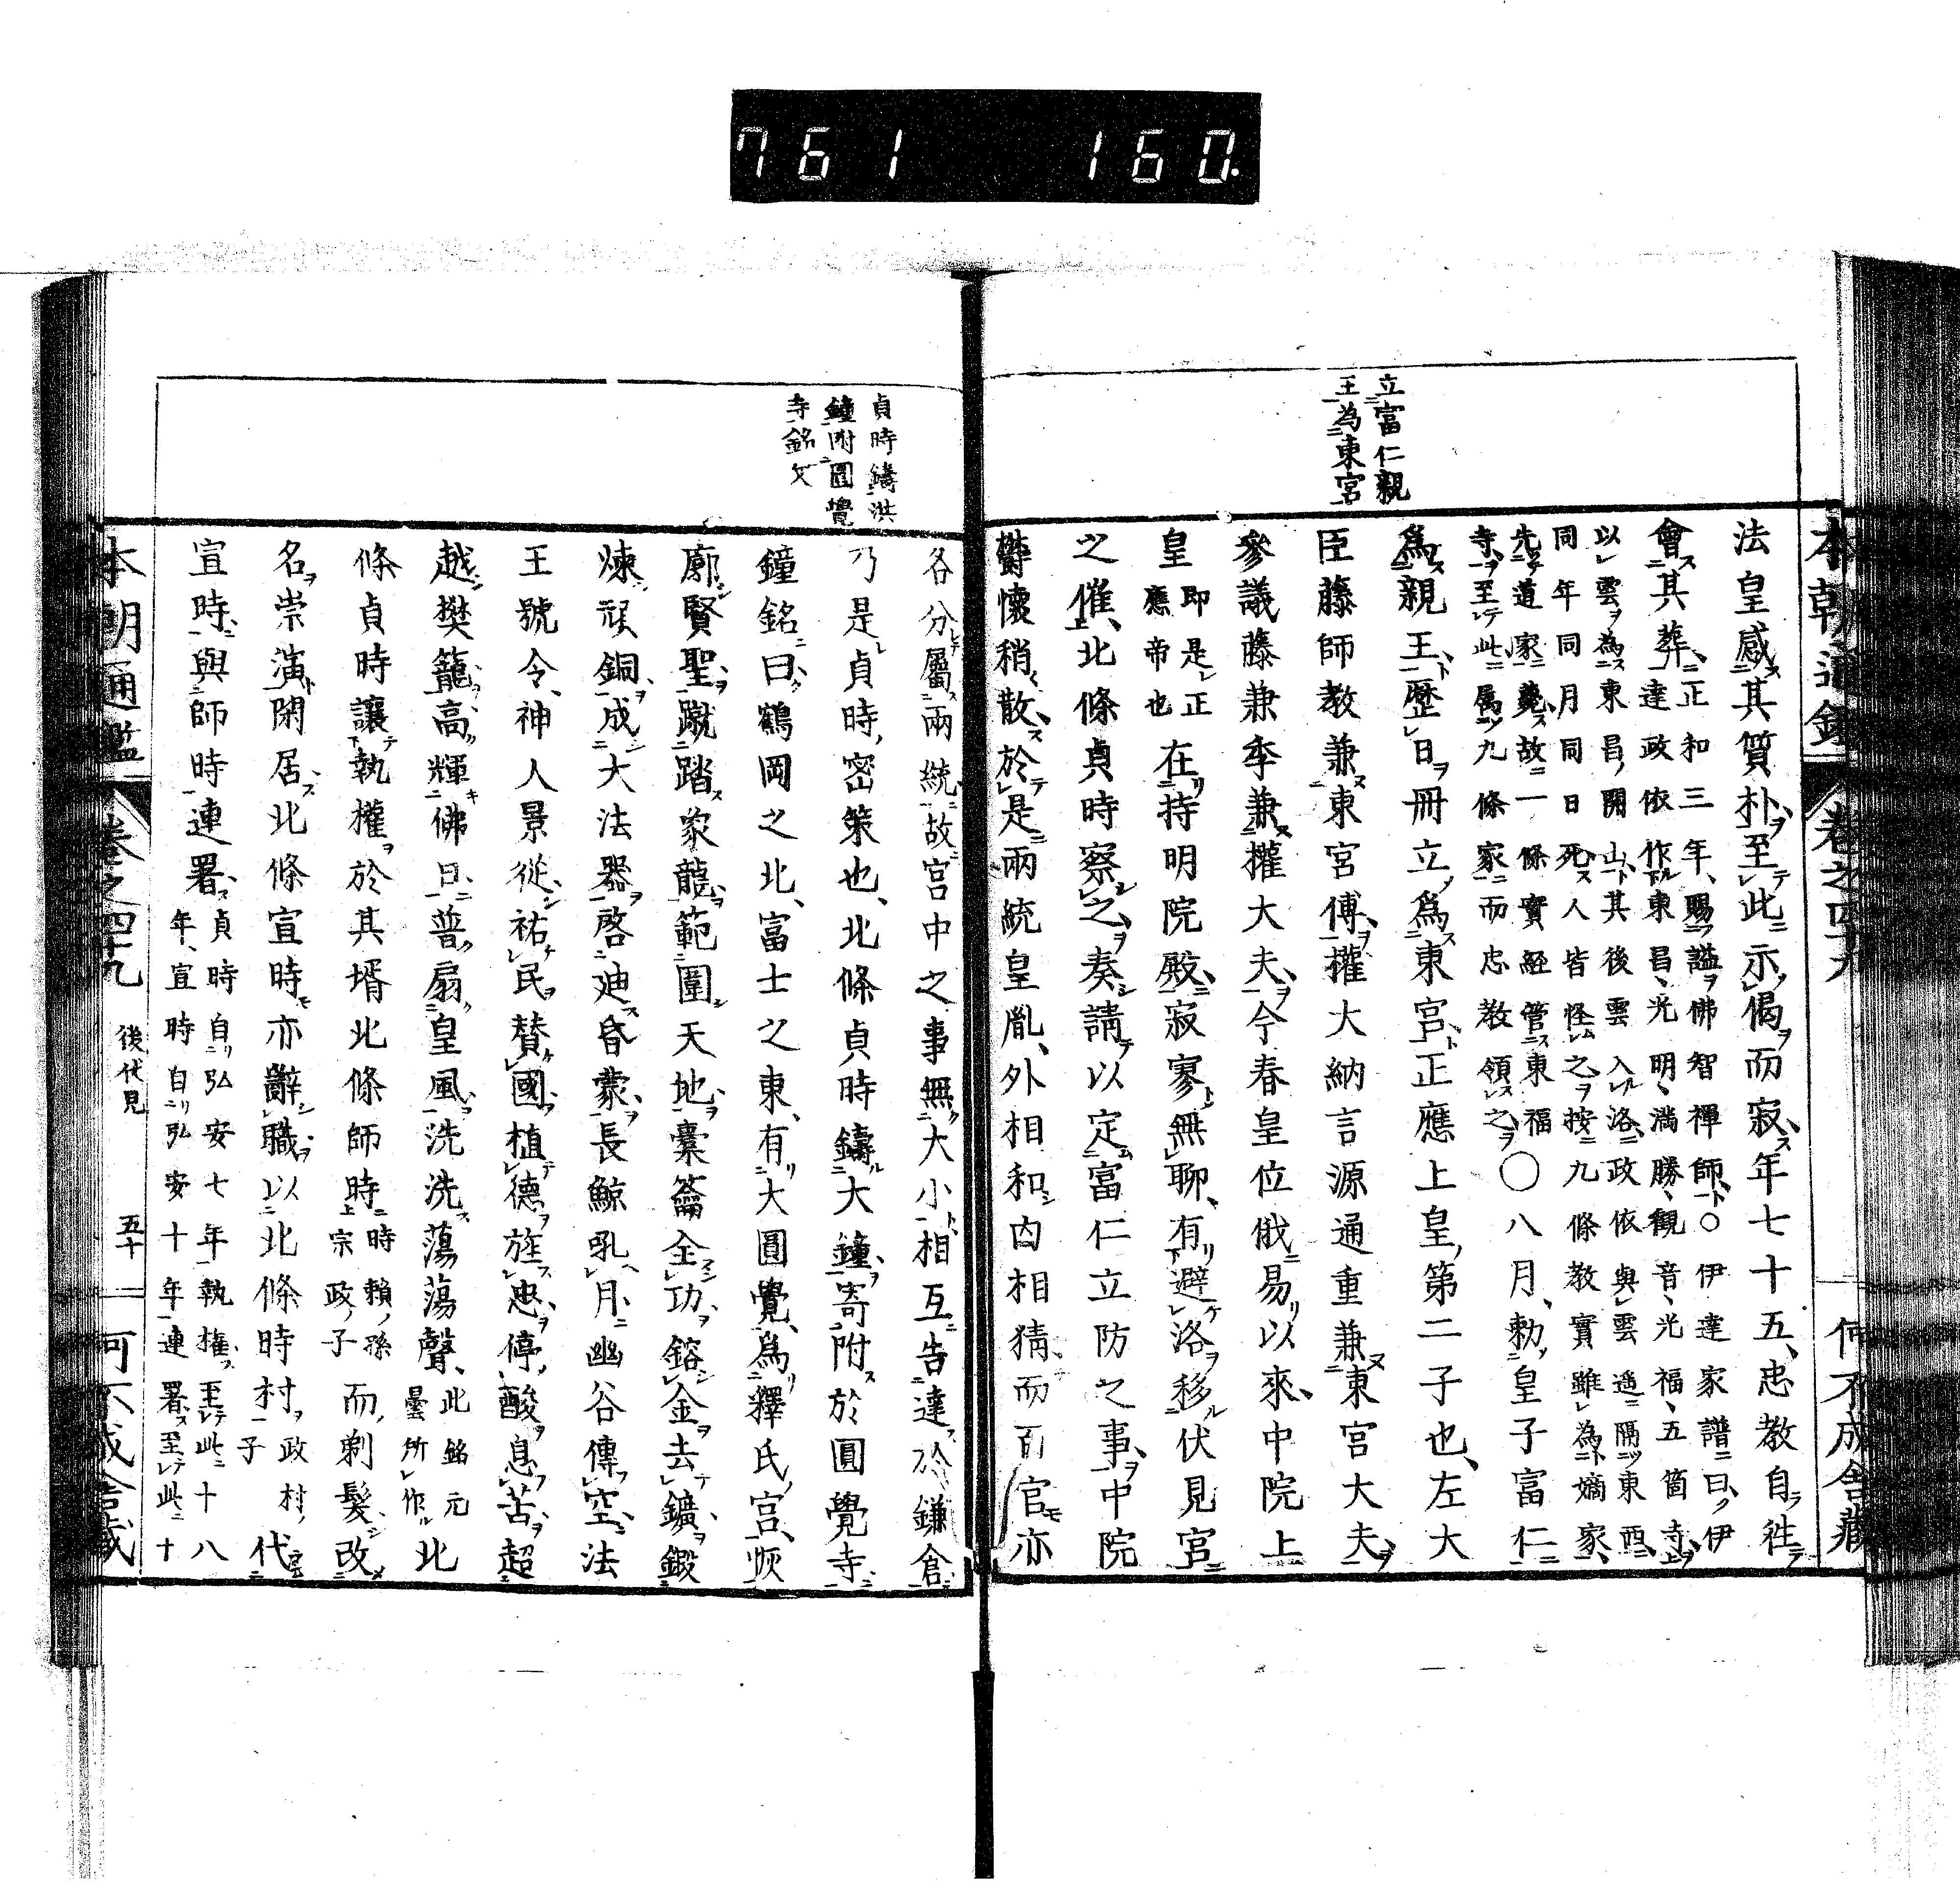 761 160.
本朝通鑑 卷之四十九 何不成舍藏
立富仁親
王為東宮
法皇感其質朴至此示偈而寂年七十五忠教自往
會其葬正和三年賜謚佛智禪師○伊達家譜曰伊
達政依作東昌光明滿勝觀音光福五箇寺
以雲為東昌開山其後雲入洛政依與雲遁隔東西
同年同月同日死人皆怪之按九條教實雖為嫡家
先道家薨故一條實経管東福
寺至此属九條家而忠教領之○八月勅皇子富仁
為親王歷日冊立為東宮正應上皇第二子也左大
臣藤師教兼東宮傅權大納言源通重兼東宮大夫
參議藤兼季兼權大夫今春皇位俄易以來中院上
皇
即是正
應帝也
在持明院殿寂寥無聊有避洛移伏見宮
之催北條貞時察之奏請以定富仁立防之事中院
欝懷稍散於是兩統皇胤外相和內相猜而百官亦
貞時鑄洪
鐘附圓覺
寺銘文
各分屬兩統故宮中之事無大小相互告達於鎌倉
乃是貞時密策也北條貞時鑄大鐘寄附於圓覺寺
鐘銘曰鶴岡之北富士之東有大圓覺為釋氏宮恢
廓賢聖蹴踏衆龍範圍天地橐籥全功鎔金去鑛鍛
煉頑銅成大法器啓迪昏蒙長鯨吼月幽谷傳空法
王號令神人景從祐民賛國植德旌忠停酸息苦超
越樊籠高輝佛日普扇皇風洗洗蕩蕩聲
此銘元
曇所作
北
條貞時讓執權於其壻北條師時
時賴孫
宗政子
而剃髮改
名崇演閑居北條宣時亦辭職以北條時村
政村
子
代
宣時與師時連署
貞時自弘安七年執権至此十八
年宣時自弘安十年連署至此十
本朝通鑑 卷之四十九 後伏見 五十一 何不成舍藏